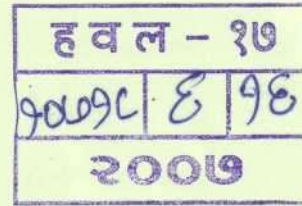 ह व ल – १७
१०७१८ ६ १६
२००७